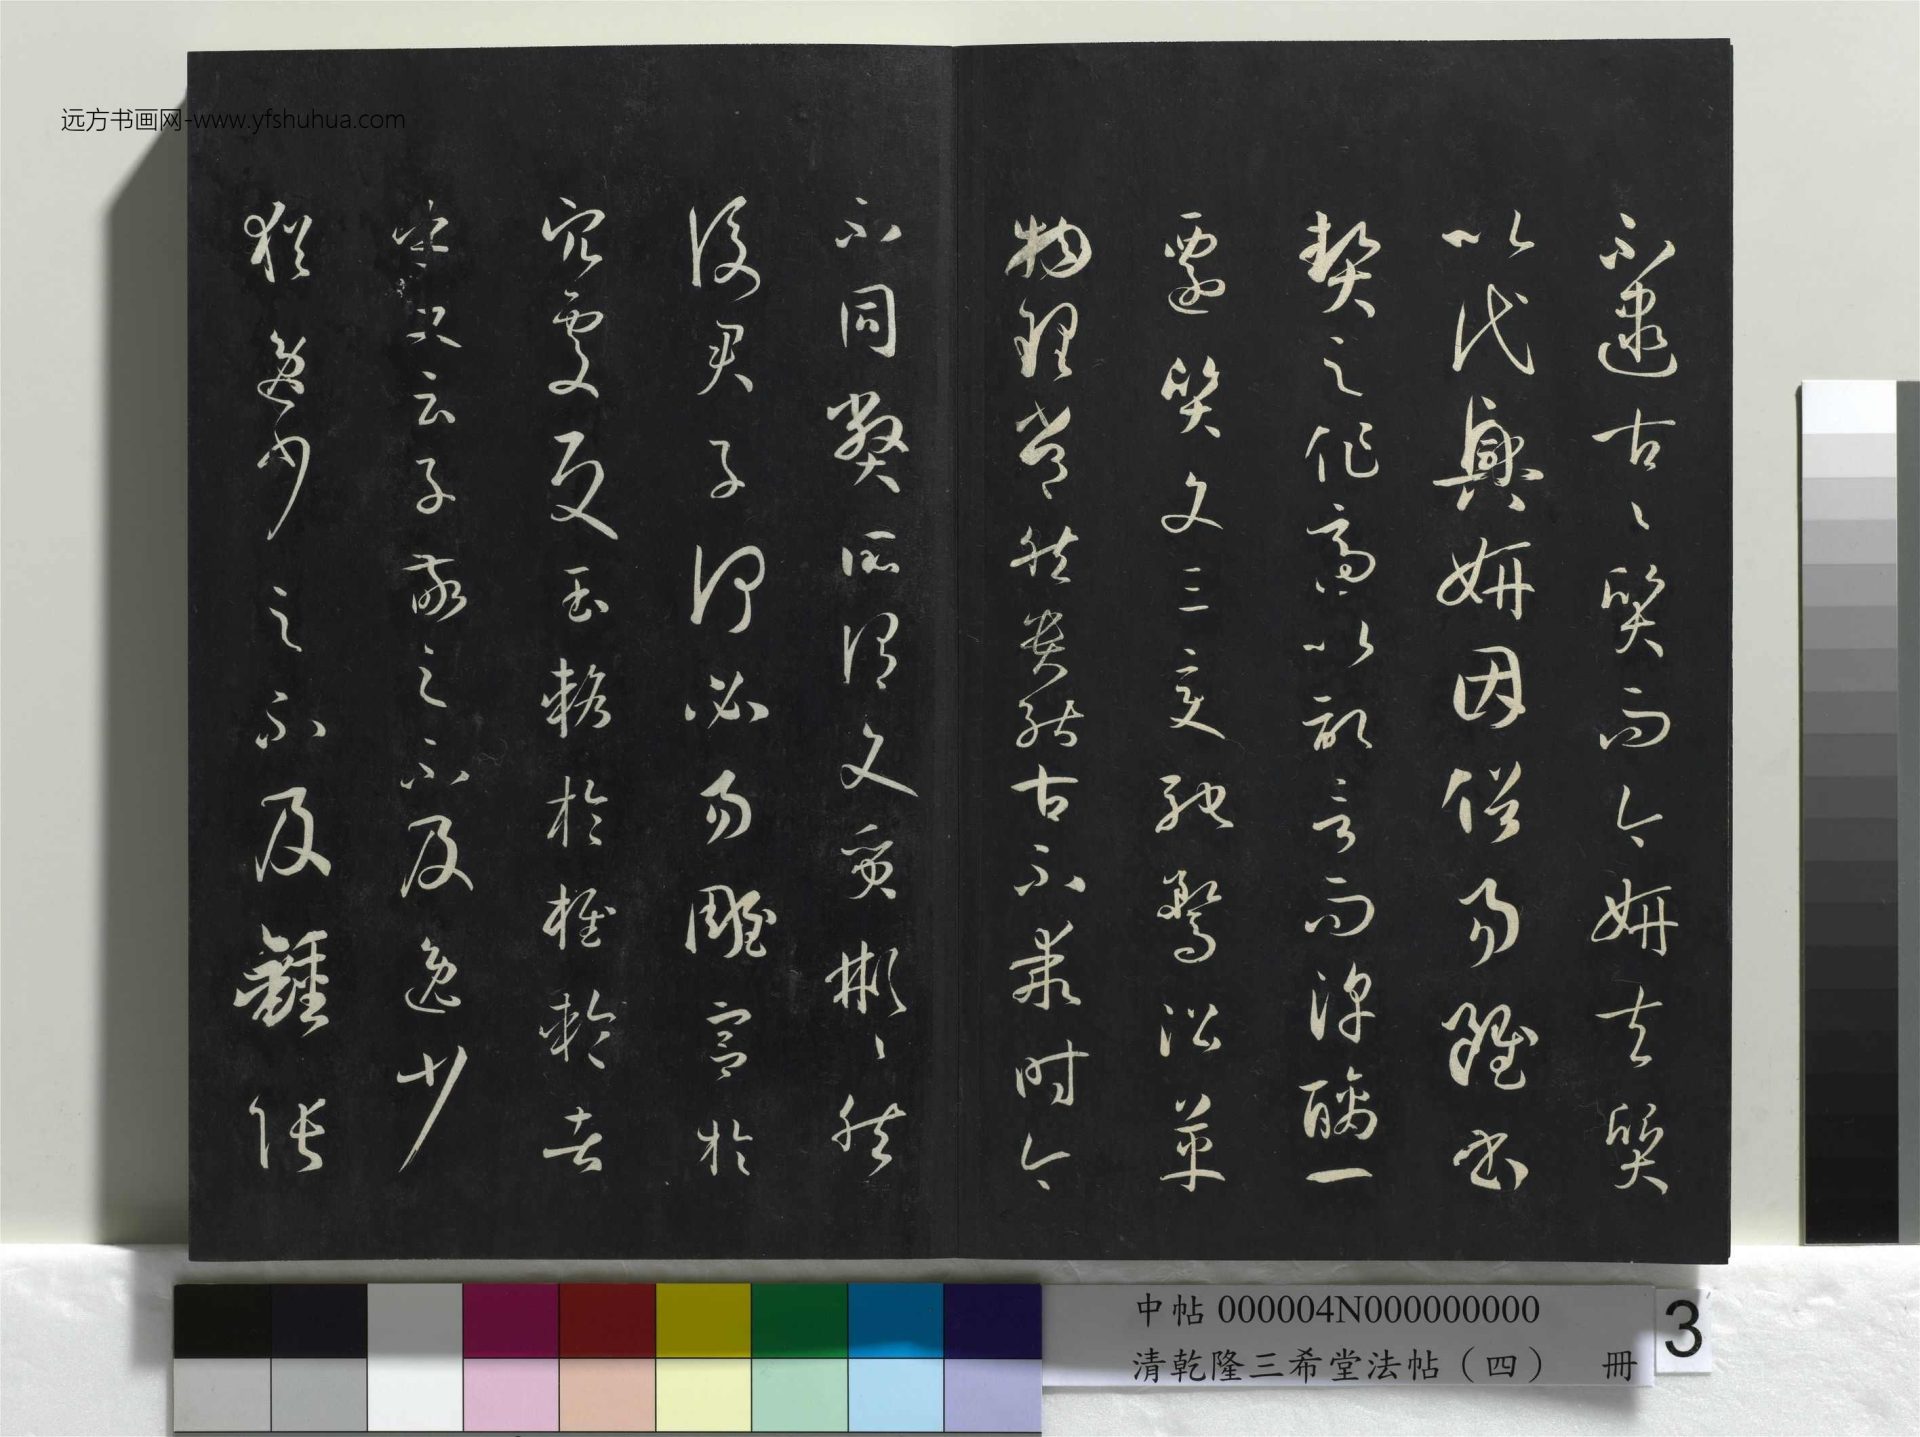 不逮古〻質而今妍夫質
以代興妍因俗易雖書
契之作適以記言而淳醨一
遷質文三變馳騖沿革
物理常然貴能古不乖時今
不同弊所謂文質彬〻然
後君子何必易雕宮於
穴處反玉輅於椎輪者
乎又云子敬之不及逸少
猶逸少之不及鍾張
远方书画网-www.yfshuhua.com
中帖 000004N000000000
清乾隆三希堂法帖（四） 冊
3